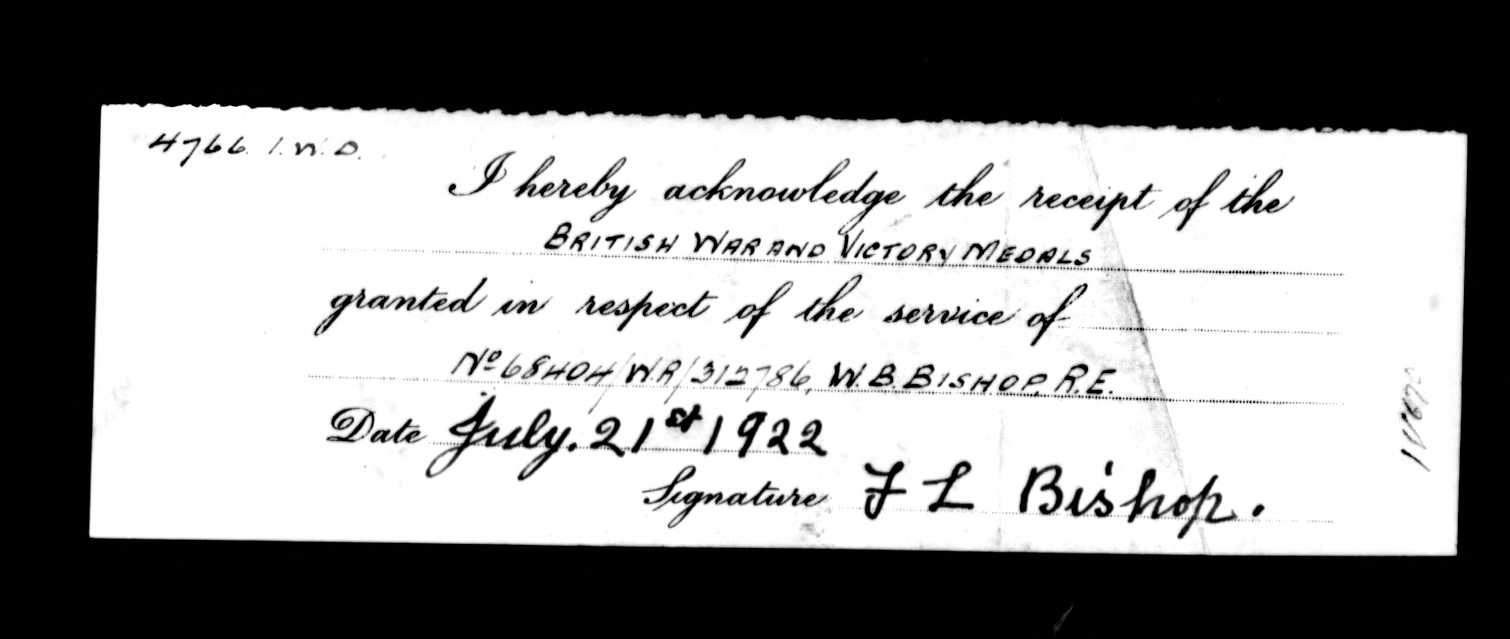 4766. I.W.D.
I hereby acknowledge the receipt of the
BRITISH WAR AND VICTORY MEDALS
granted in respect of the service of
No 68404/W.R/312786, W.B. BISHOP, R.E.
Date July. 21st 1922
Signature F L Bishop.